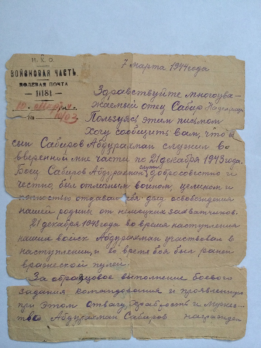 Н.К.О.
ВОЙСКОВАЯ ЧАСТЬ
ПОЛЕВАЯ ПОЧТА
7 марта 1944 года
Здравствуйте многоува-
жаемый отец Сабир
Пользуясь этим письмом
Хочу сообщить вам, что ваш
сын Сабиров Абдурахман служил во
вверенной мне части по 21 декабря 1943 года.
Боец Сабиров Абдурахман добросовестно и
честно, был отличным воином,
отдавал для освобождения
нашей родины от немецких захватчиков.
21 декабря 1943 во время наступления
наших войск Абдурахман участвовал в
наступлении, во время боя был ранен
вражеской пулей.
За образцовое выполнение боевого
задания командования и проявленную
при этом отвагу, храбрость и мужес-
тво Абдурахман Сабиров награжден